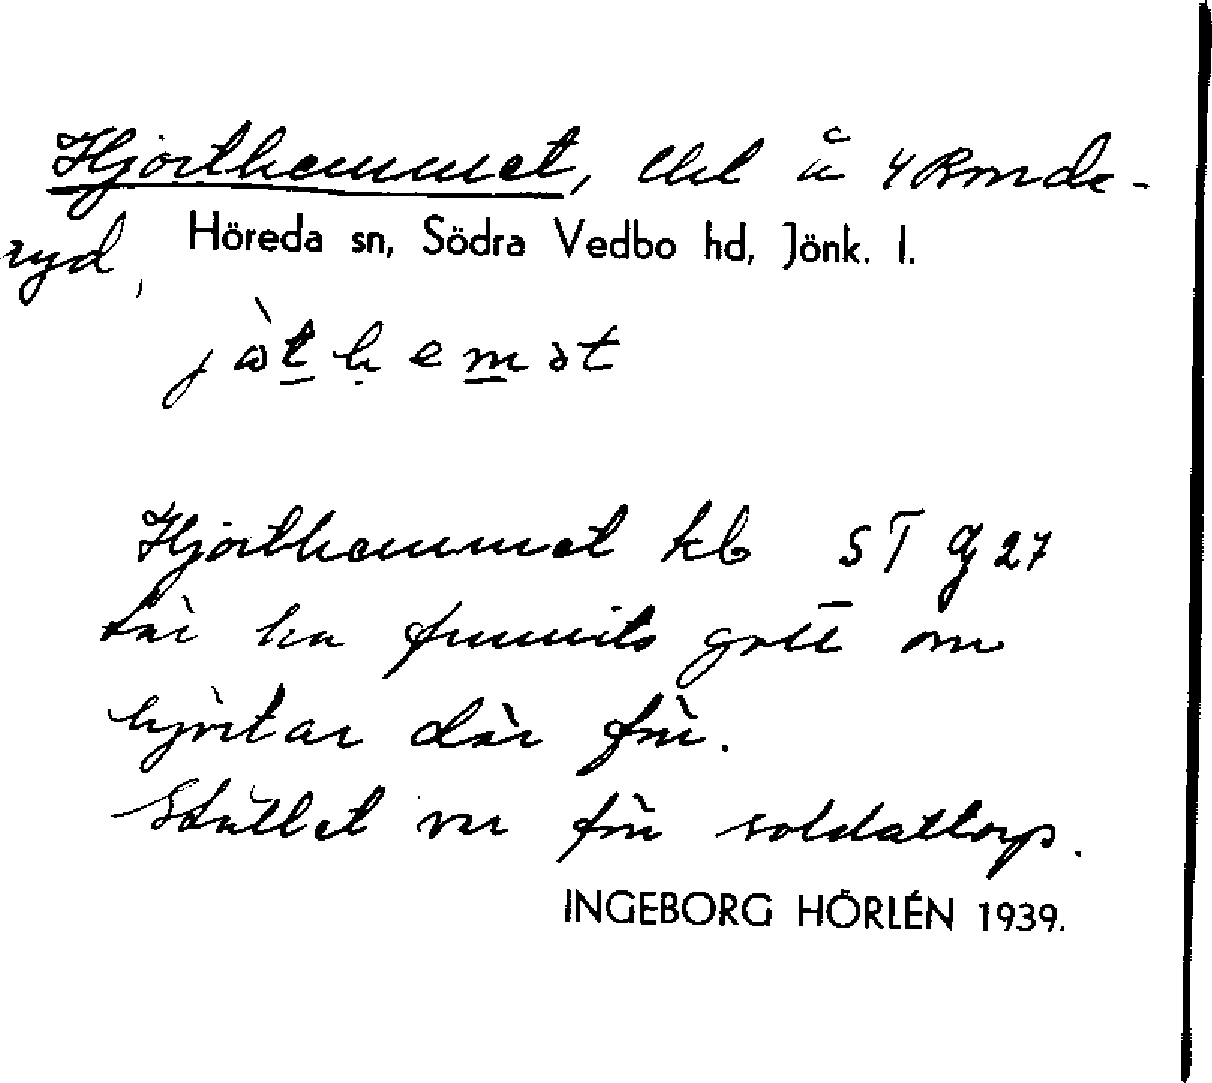 Hjorthemmet, del å 4 Runde-
ryd, Höreda sn, Södra Vedbo hd, Jönk. l.
Hjorthemmet kb ST G 27
här ha funnits gott om
hjortar där för.
Stället var för soldattorp.
INGEBORG HÖRLÉN 1939.